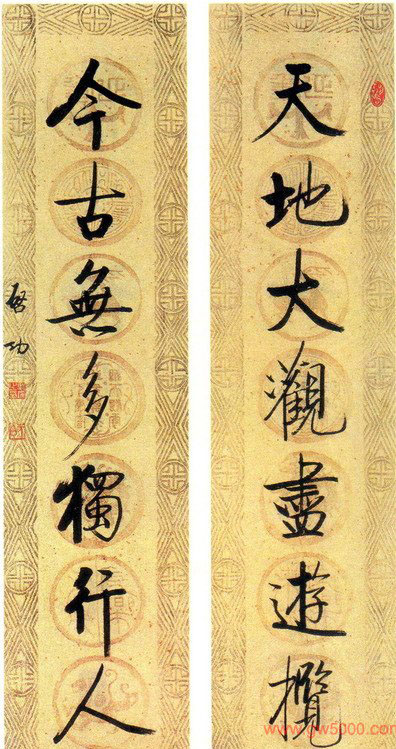 天地大觀盡遊攬
今古無多獨行人
啓功
www.gw5000.com